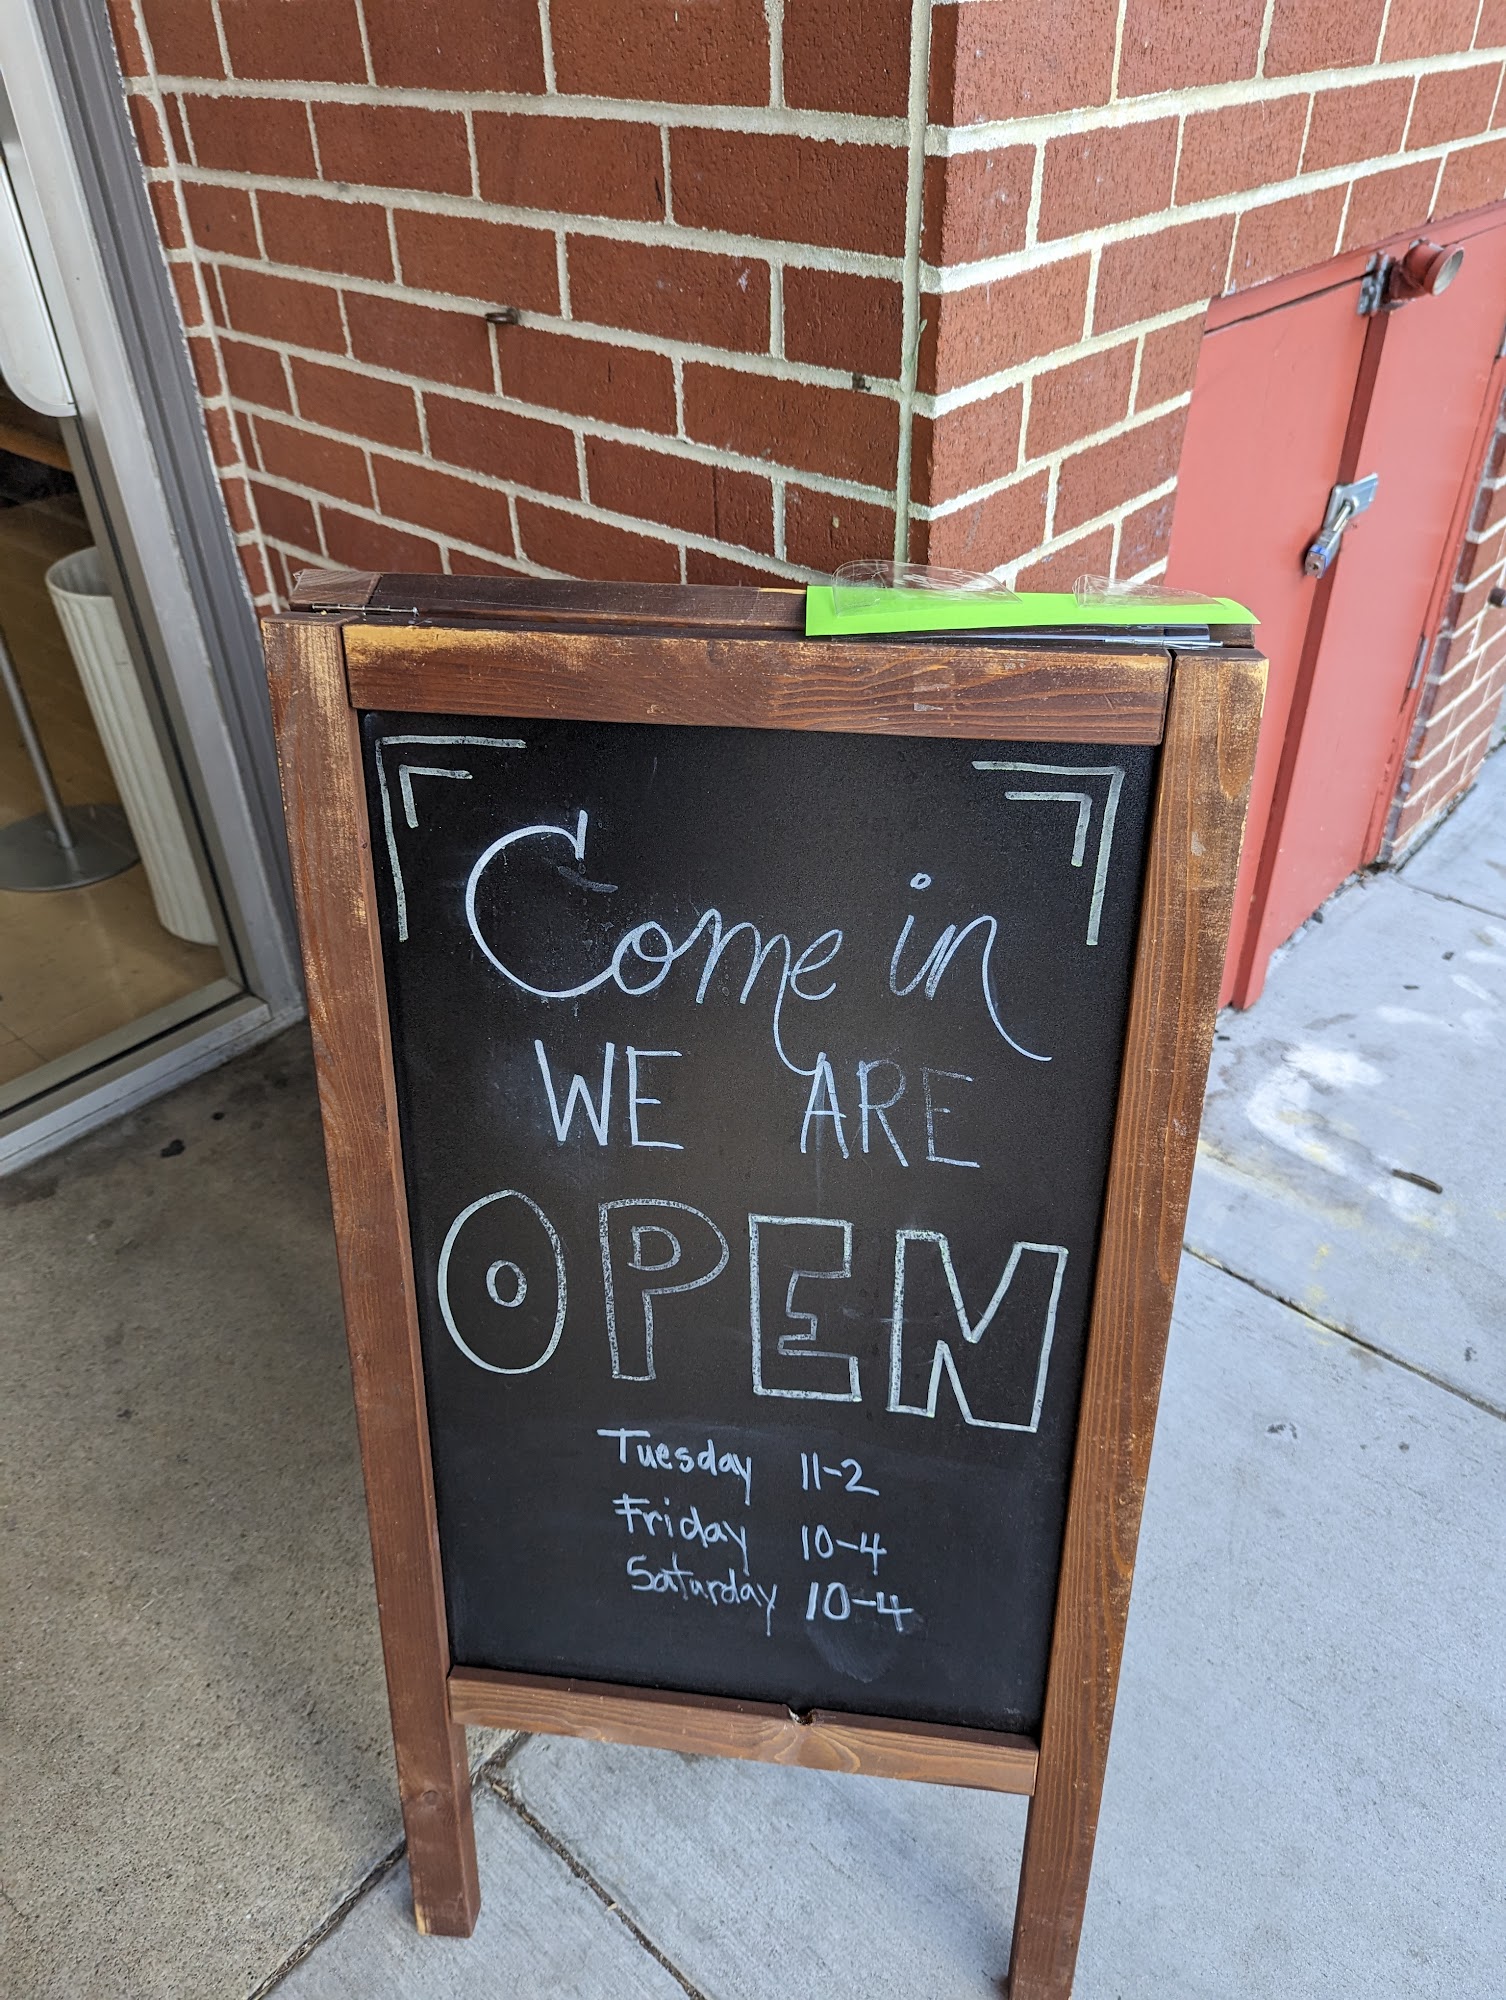 Come in
WE ARE
OPEN
Tuesday 11-2
Friday 10-4
Saturday 10-4